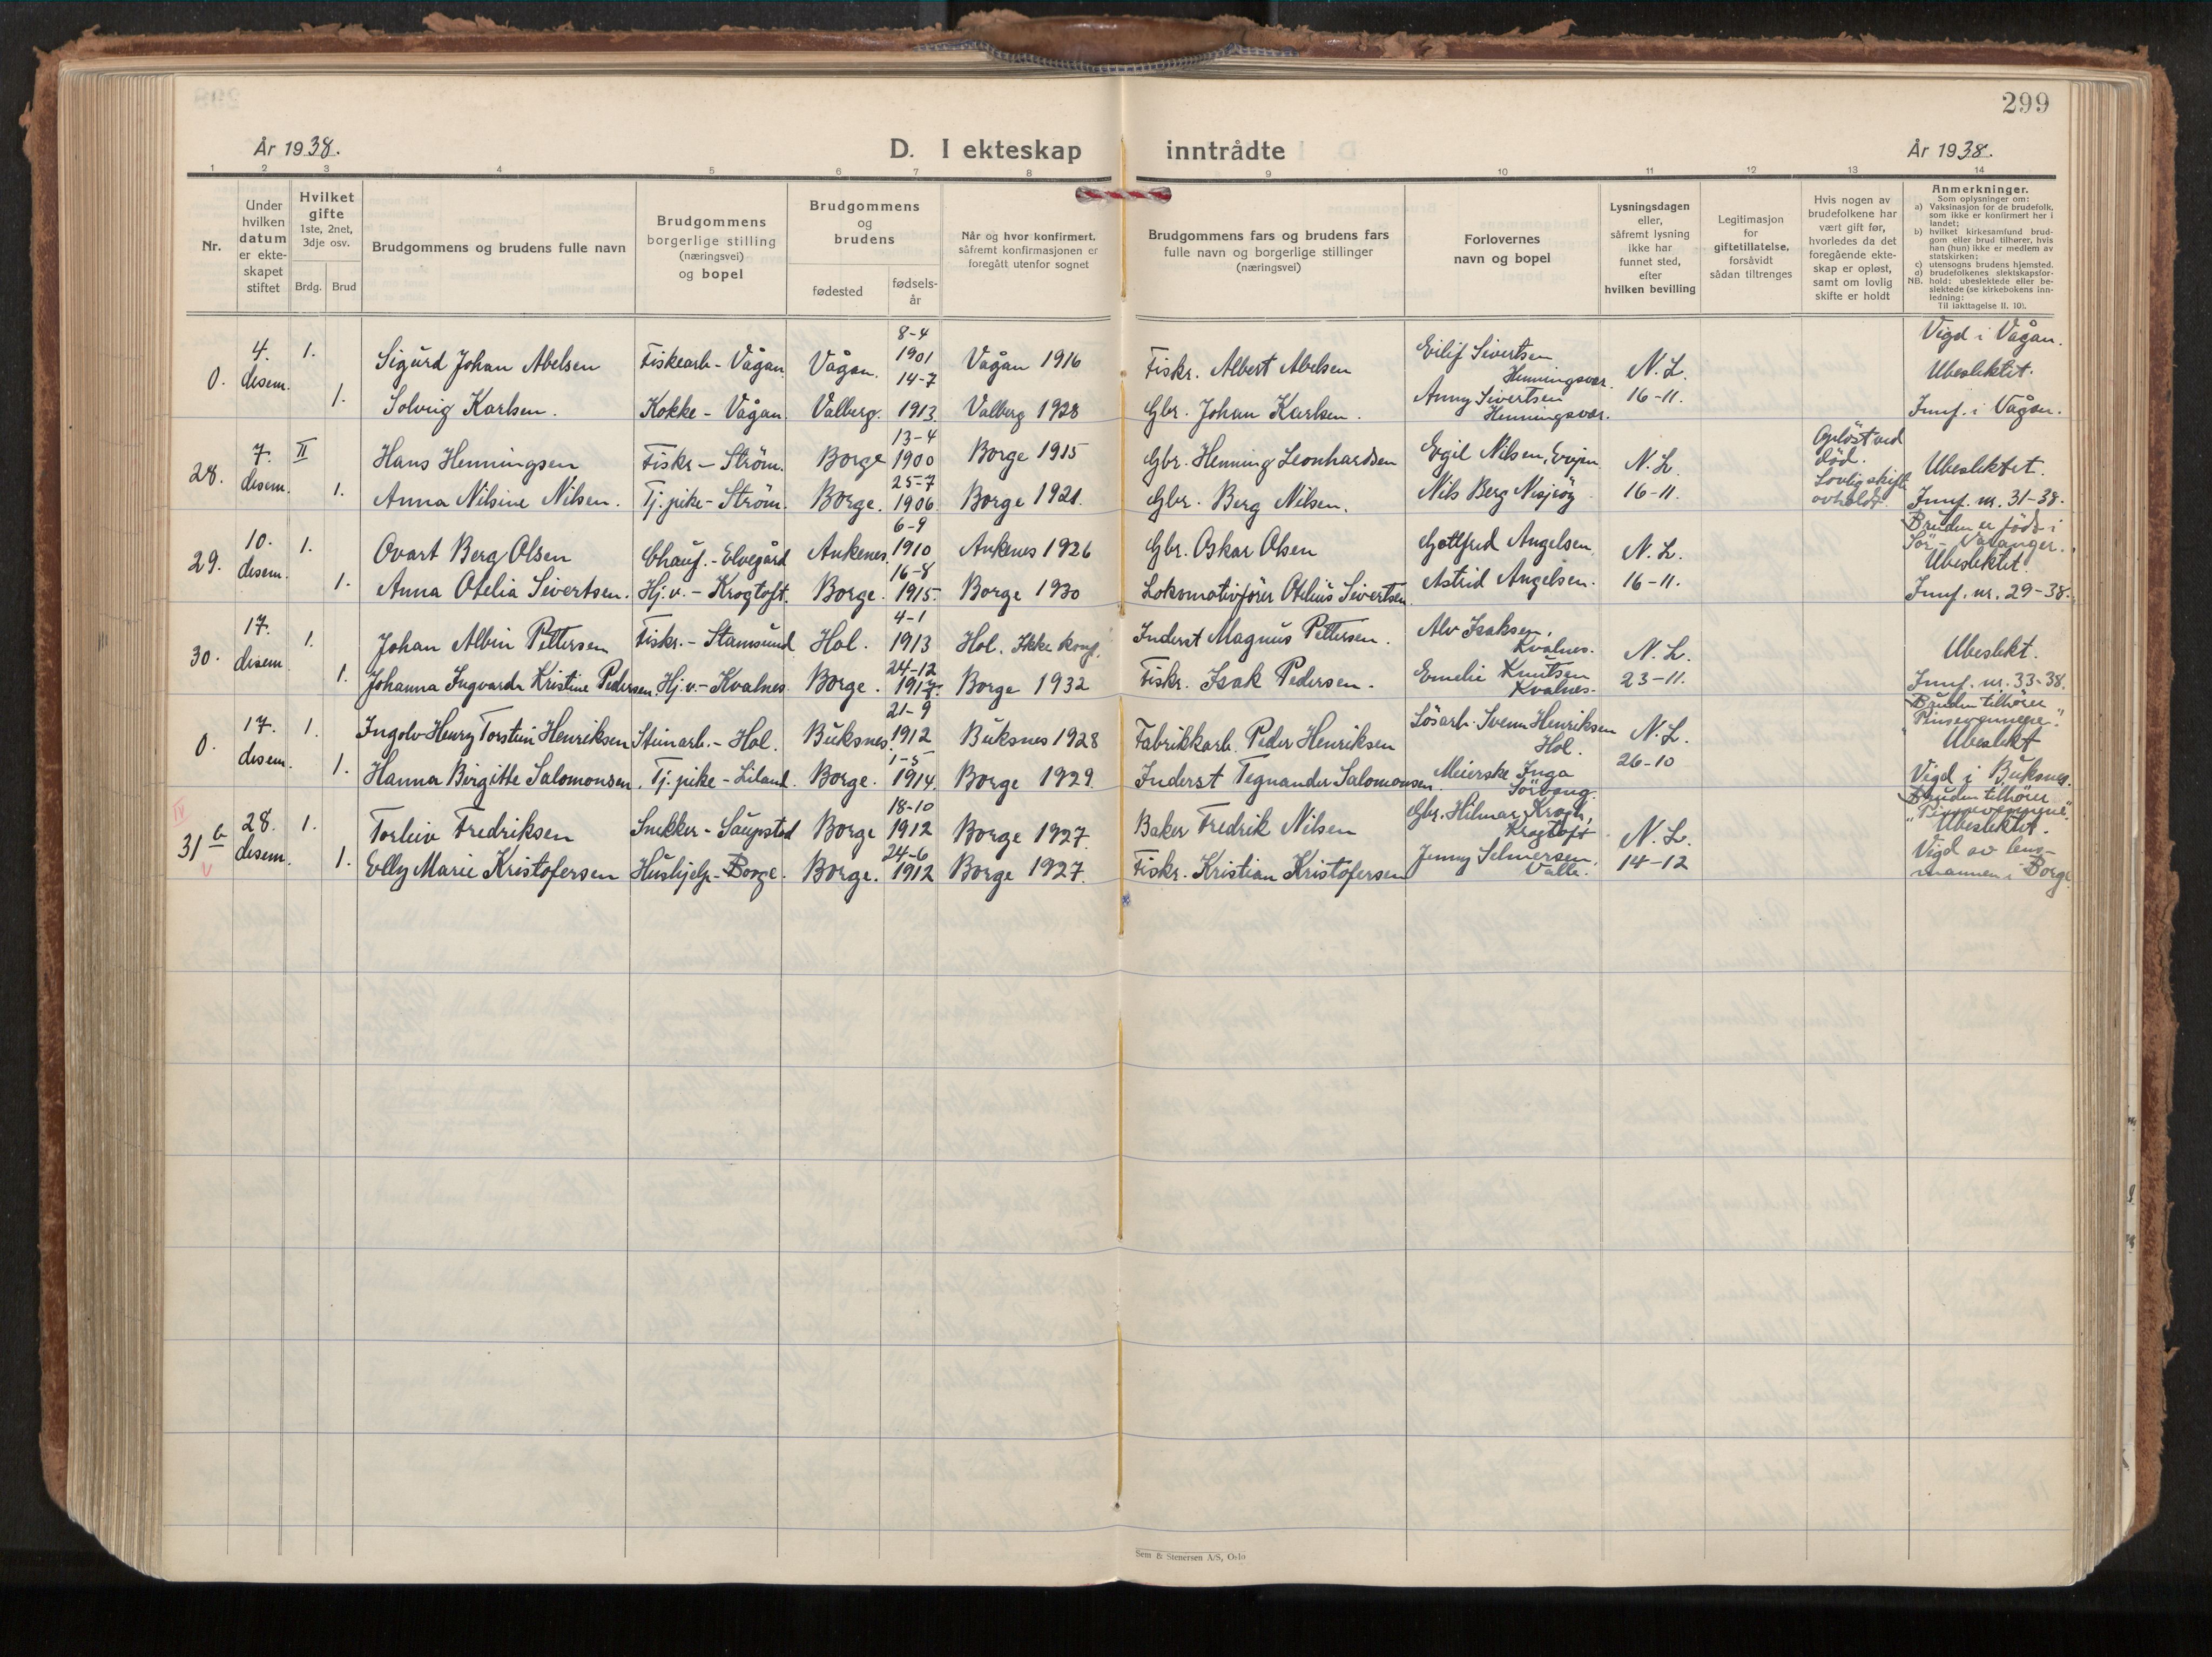 299
År 1938.
D. I ekteskap inntrådte
År 1938.
1 2 3 4 5 6 7 8 9 10 11 12 13 14
Nr.
Under
hvilken
datum
er ekte-
skapet
stiftet
Hvilket
gifte
1ste, 2net,
3dje osv.
Brdg. Brud
Brudgommens og brudens fulle navn
Brudgommens
borgerlige stilling
(næringsvei)
og bopel
Brudgommens
og
brudens
fødested
fødsels-
år
Når og hvor konfirmert,
såfremt konfirmasjonen er
foregått utenfor sognet
Brudgommens fars og brudens fars
fulle navn og borgerlige stillinger
(næringsvei)
Forlovernes
navn og bopel
Lysningsdagen
eller,
såfremt lysning
ikke har
funnet sted,
efter
hvilken bevilling
Legitimasjon
for
giftetillatelse,
forsåvidt
sådan tiltrenges
Hvis nogen av
brudefolkene har
vært gift før,
hvorledes da det
foregående ekte-
skap er opløst,
samt om lovlig
skifte er holdt
Anmerkninger.
Som oplysninger om:
a) Vaksinasjon for de brudefolk,
som ikke er konfirmert her i
landet;
b) hvilket kirkesamfund brud-
gom eller brud tilhører, hvis
han (hun) ikke er medlem av
statskirken;
c) utensogns brudens hjemsted.
d) brudefolkenes slektskapsfor-
hold: ubeslektede eller be-
slektede (se kirkebokens inn-
ledning:
NB. Til iakttagelse II. 10).
0. 4. desem. 1. Sigurd Johan Abelsen Fiskearb - Vågan Vågan. 8-4 1901 Vågan 1916 Fiskr. Albert Abelsen Eilif Sivertsen Henningsvær. N. L. 16-11. Vigd i Vågan. Ubeslektet.
1. Solveig Karlsen. Kokke - Vågan. Valberg. 14-7 1913. Valberg 1928 Gbr. Johan Karlsen. Anny Sivertsen Henningsvær. Innf. i Vågan.
28. 7. desem. II Hans Henningsen Fiskr - Ström. Borge 13-4 1900 Borge 1915 Gbr. Henning Leonhardsen Egil Nilsen, N. L. 16-11. Opløst ved død. Lovlig skifte avholdt. Ubeslektet.
1. Anna Nilsine Nilsen. Tj. pike - Ström. Borge. 25-7 1906. Borge 1921. Gbr. Berg Nilsen. Nils Berg Innf. nr. 31-38.
29. 10. desem. 1. Ovart Berg Olsen Chauf. - Elvegård Ankenes. 6-9 1910 Ankenes 1926 Gbr. Oskar Olsen Gottfred Angelsen N. L. 16-11. Bruden er född i Sør-Varanger. Ubeslektet.
1. Anna Otelia Sivertsen. Hj. v. - Krogtoft. Borge. 16-8 1915. Borge 1930 Lokomotivfører Otelius Sivertsen Astrid Angelsen. Innf. nr. 29-38.
30. 17. desem. 1. Johan Albin Pettersen Fiskr. - Stamsund Hol. 4-1 1913 Hol. Ikke konf. Inderst Magnus Pettersen. Alv Isaksen, Kvalnes. N. L. 23-11. Ubeslekt.
1. Johanna Ingvarda Kristine Pedersen. Hj. v. - Kvalnes. Borge. 24-12 1917. Borge 1932 Fiskr. Isak Pedersen. Emelie Knutsen Kvalnes. Innf. nr. 33-38.
0. 17. desem. 1. Ingolv Henry Torstein Henriksen Steinarb. - Hol. Buksnes. 21-9 1912 Buksnes 1928 Fabrikkarb. Peder Henriksen Lösarb. Svenn Henriksen Hol. N. L. 26-10 Bruden tilhører "Pinsevennene." Ubeslekt
1. Hanna Birgitte Salomonsen. Tj. pike - Liland. Borge. 1-5 1914. Borge 1929. Inderst Tegnander Salomonsen. Meierske Inga Vigd i Buksnes.
31 b 28. desem. 1. Torleiv Fredriksen Snekker - Saupstad Borge 18-10 1912 Borge 1927. Baker Fredrik Nilsen Gbr. Hilmar Krogh, Krogtoft N. L. 14-12 Bruden tilhører "Pinsevennene". Ubeslektet.
1. Elly Marie Kristofersen Hushjelp - Borge. Borge. 24-6 1912 Borge 1927. Fiskr. Kristian Kristofersen Jenny Selmersen. Valle. Vigd av lens-
mannen i Borge.
IV
V
Sem & Stenersen A/S, Oslo